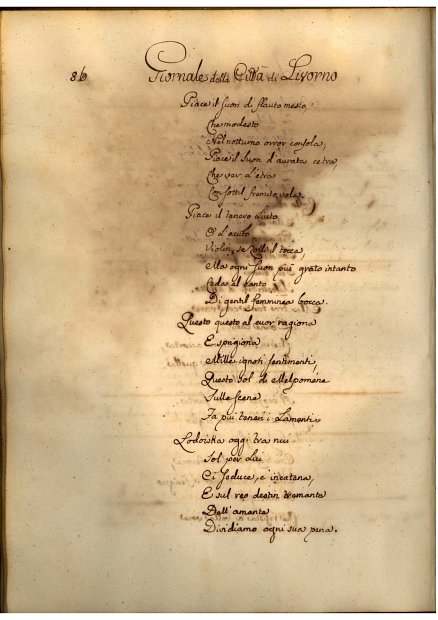 86 Giornale della Città di Livorno
Piace il suon di flauto mesto
Che modesto
Nel notturno orror consola,
Piace il suon d'aurata cetra,
Che per l'etra
Con sottil fremito vola.
Piace il tenero liuto
E l'acuto
Violin, se Lolli il tocca,
Ma ogni suon più grato intanto
Ceda al canto
Di gentil femminea bocca.
Questo questo al cuor ragiona
E sprigiona
Mille ignoti sentimenti,
Questo sol di Melpomene
Sulle scene
Fa più teneri i Lamenti.
Lodoiska oggi tra noi
Sol per Lei
Ci seduce, e incatena,
E sul reo destin tremante
Dell'amante
Dividiamo ogni sua pena.